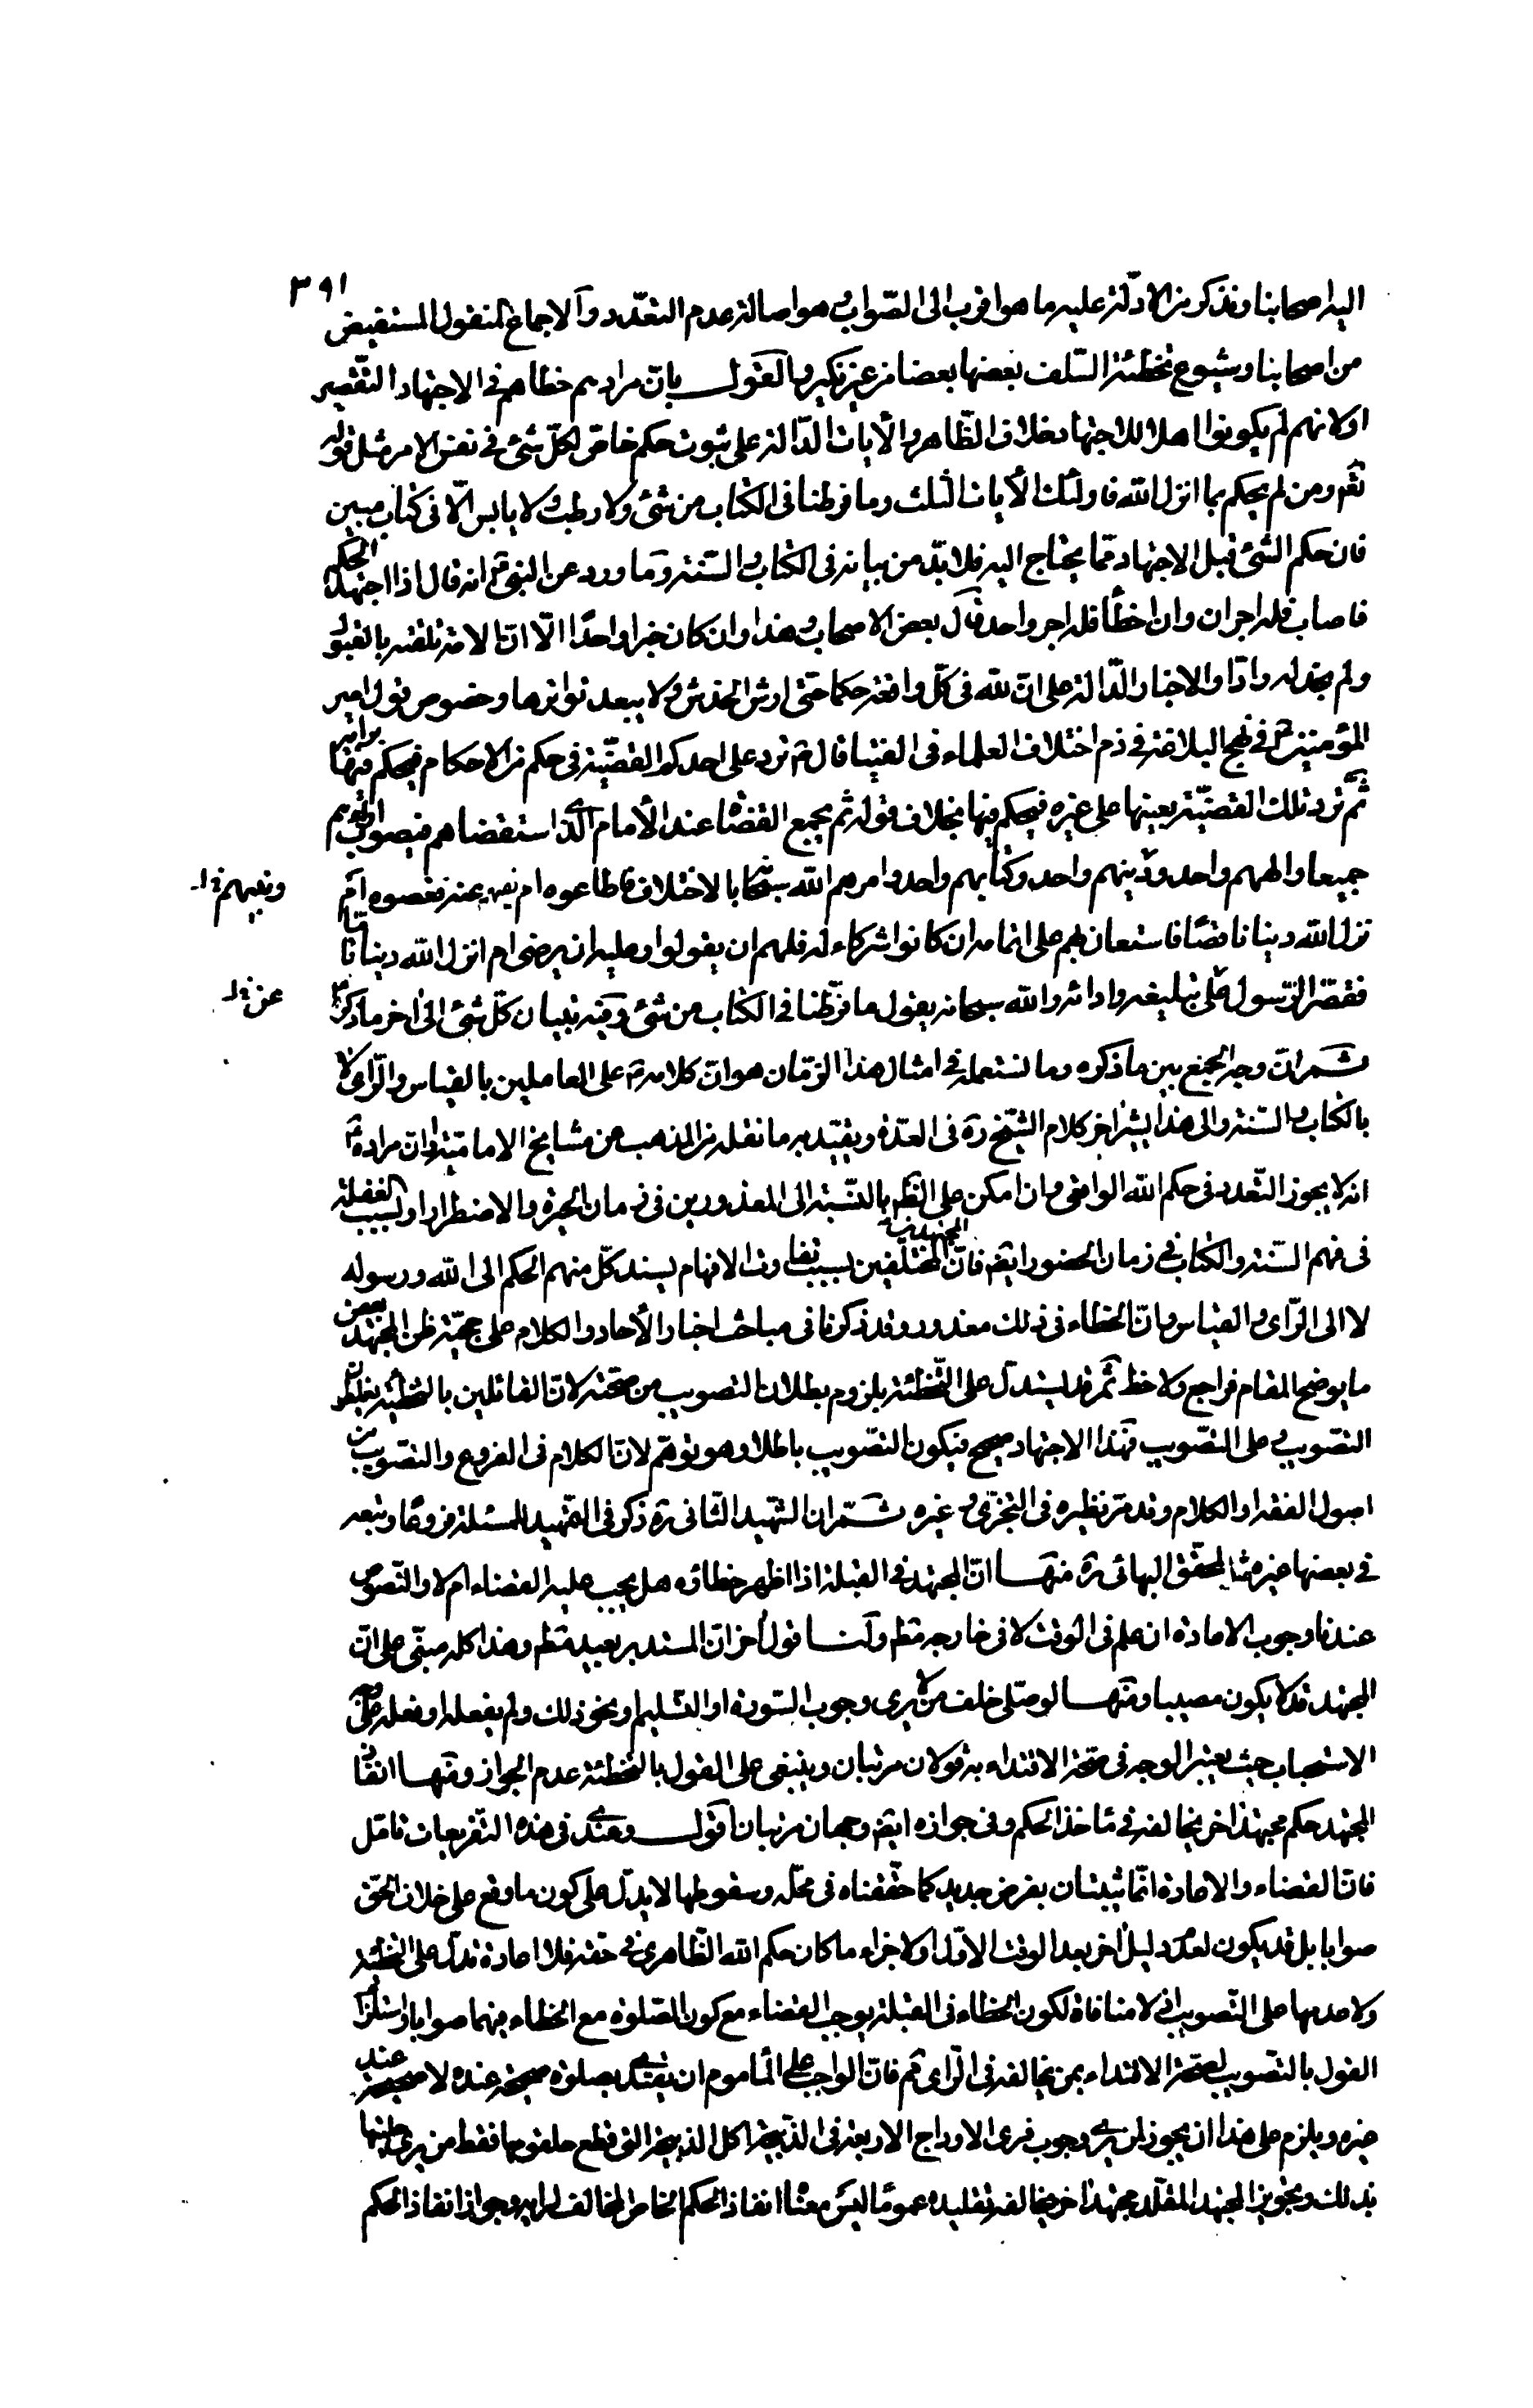 ٣٩١
اليه اصحابنا ونذكر من الادلّة عليه ما هو اقرب الى الصّواب و هو اصالة عدم التعدّد و الاجماع المنقول المستفيض
من اصحابنا و شيوع تخطئة السّلف بعضها بعضا من غير نكير و القول بانّ مرادهم خطاهم فى الاجتهاد التقصير
او لانهم لم يكونوا اهلا للاجتهاد خلاف الظّاهر و الايات الدّالة على ثبوت حكم خاصّ لكلّ شئ فى نفس الامر مثل قوله
تعم و من لم يحكم بما انزل اللّه فاولئك الايات الثلث و ما فرطنا فى الكتاب من شئ و لا رطب و لا يابس الّا فى كتاب مبين
فان حكم الشئ قبل الاجتهاد ممّا يحتاج اليه فلا بدّ من بيانه فى الكتاب و السّنة و ما ورد عن النبىّ ص انه قال اذا اجتهد الحاكم
فاصاب فله اجران و ان اخطأ فله اجر واحد قال بعض الاصحاب و هذا و ان كان خبرا واحدا الّا انّ الامة تلقته بالقبول
و لم نجد له رادّا و الاخبار الدّالة على انّ للّه فى كلّ واقعة حكما حتى ارش الخدش و لا يبعد تواترها و خصوص قول امير
المؤمنين ع فى نهج البلاغة فى ذم اختلاف العلماء فى الفتيا قال ع ترد على احدكم القضيّة فى حكم من الاحكام فيحكم فيها برايه
ثم ترد تلك القضيّة بعينها على غيره فيحكم فيها بخلاف قوله ثم يجمع القضاة عند الامام الّذى استقضاهم فيصوب ارائهم
جميعا و الههم واحد و دينهم واحد و كتابهم واحد و امرهم اللّه سبحانه بالاختلاف فاطاعوه ام نهيهم عنه فعصوه ام
ونبيهم خ ل
نزل اللّه دينا ناقصا فاستعان بهم على اتمامه ان كانوا شركاء له فلهم ان يقولوا و عليه ان يرضى ام انزل اللّه دينا تامّا
فقصّر الرّسول ص على تبليغه و ادائه و اللّه سبحانه يقول ما فرّطنا فى الكتاب من شئ و فيه تبيان كلّ شئ الى اخر ما ذكره
عن خ ل
ثمّ ان وجه الجمع بين ما ذكره و ما نستعمله فى امثال هذا الزّمان هو انّ كلامه ع على العاملين بالقياس و الرّاى لا
بالكتاب و السّنة و الى هذا يشير اخر كلام الشّيخ ره فى العدّة و يقيّد به ما نقله من المذهب عن مشايخ الاماميّة و انّ مراده ع
انه لا يجوز التّعدد فى حكم اللّه الواقعى و ان امكن على الظّم بالنّسبة الى المعذورين فى زمان الحيرة و الاضطرار او بسبب الغفلة
فى فهم السّنة و الكتاب فى زمان الحضور ايضم فانّ المجتهدين المختلفين بسبب تفاوت الافهام يسند كلّ منهم الحكم الى اللّه و رسوله
لا الى الرّاى و القياس و انّ الخطاء فى ذلك معذور و قد ذكرنا فى مباحث اخبار الأحاد و الكلام على حجيّة ظن المجتهد بعض
ما يوضح المقام فراجع و لاحظ ثمّ قد يستدلّ على التّخطئة بلزوم بطلان التصويب من صحّته لانّ القائلين بالتخطئة يغلطون
التصويب على التصويب فهذا الاجتهاد صحيح فيكون التّصويب باطلا و هو توهّم لانّ الكلام فى الفروع و التصويب من
اصول الفقه او الكلام و قد مرّ نظيره فى التجزّى و غيره ثمّ ان الشّهيد الثّانى ره ذكر فى التّمهيد للمسئلة فروعا و تبعه
فى بعضها غيره مثل المحقّق البهائى ره منها انّ المجتهد فى القبلة اذا ظهر خطاؤه هل يجب عليه القضاء ام لا و النّصوص
عندنا وجوب الاعادة ان علم فى الوقت لا فى خارجه مطم و لنا قول اخر انّ المستدبر يعيد مطم و هذا كله مبنى على انّ
المجتهد قد لا يكون مصيبا و منها لو صلّى خلف من لا يرى وجوب السّورة او التّسليم و نحو ذلك و لم يفعله او فعله على وجه
الاستحباب حيث يعتبر الوجه فى صحّة الاقتداء به قولان مرتبان و ينبغى على القول بالتّخطئة عدم الجواز و منها انفاذ
المجتهد حكم مجتهد اخر يخالفه فى مأخذ الحكم و فى جوازه ايضم وجهان مرتبان اقول و عندى فى هذه التّفريعات تامّل
فانّ القضاء و الاعادة انّما يثبتان بفرض جديد كما حقّقناه فى محلّه و سقوطها لا يدلّ على كون ما وقع على خلاف الحقّ
صوابا بل قد يكون لعدم دليل اخر بعد الوقت الاوّل او لاجزاء ما كان حكم اللّه الظّاهرى فى حقه فلا اعادة تدلّ على التّخطئة
و لا عدمها على التّصويب اذ لا منافاة لكون الخطاء فى القبلة يوجب القضاء مع كون الصّلوة مع الخطاء فيهما صوابا و استلزام
القول بالتصويب لصحّة الاقتداء بمن يخالفه فى الرّاى تم فانّ الواجب على المأموم ان يقتدى بصلوة صحيحة عنده لا صحيحة عند
غيره و يلزم على هذا ان يجوز لمن يرى وجوب فرى الاوداج الاربعة فى الذّبيحة اكل الذّبيحة الّتى قطع حلقومها فقط من يرى حليّتها
بذلك و تجويز المجتهد المقلّد مجتهدا اخر يخالفه تقليده عموما ليس معناه انفاذ الحكم الخاص المخالف لرايه و جواز انفاذ الحكم